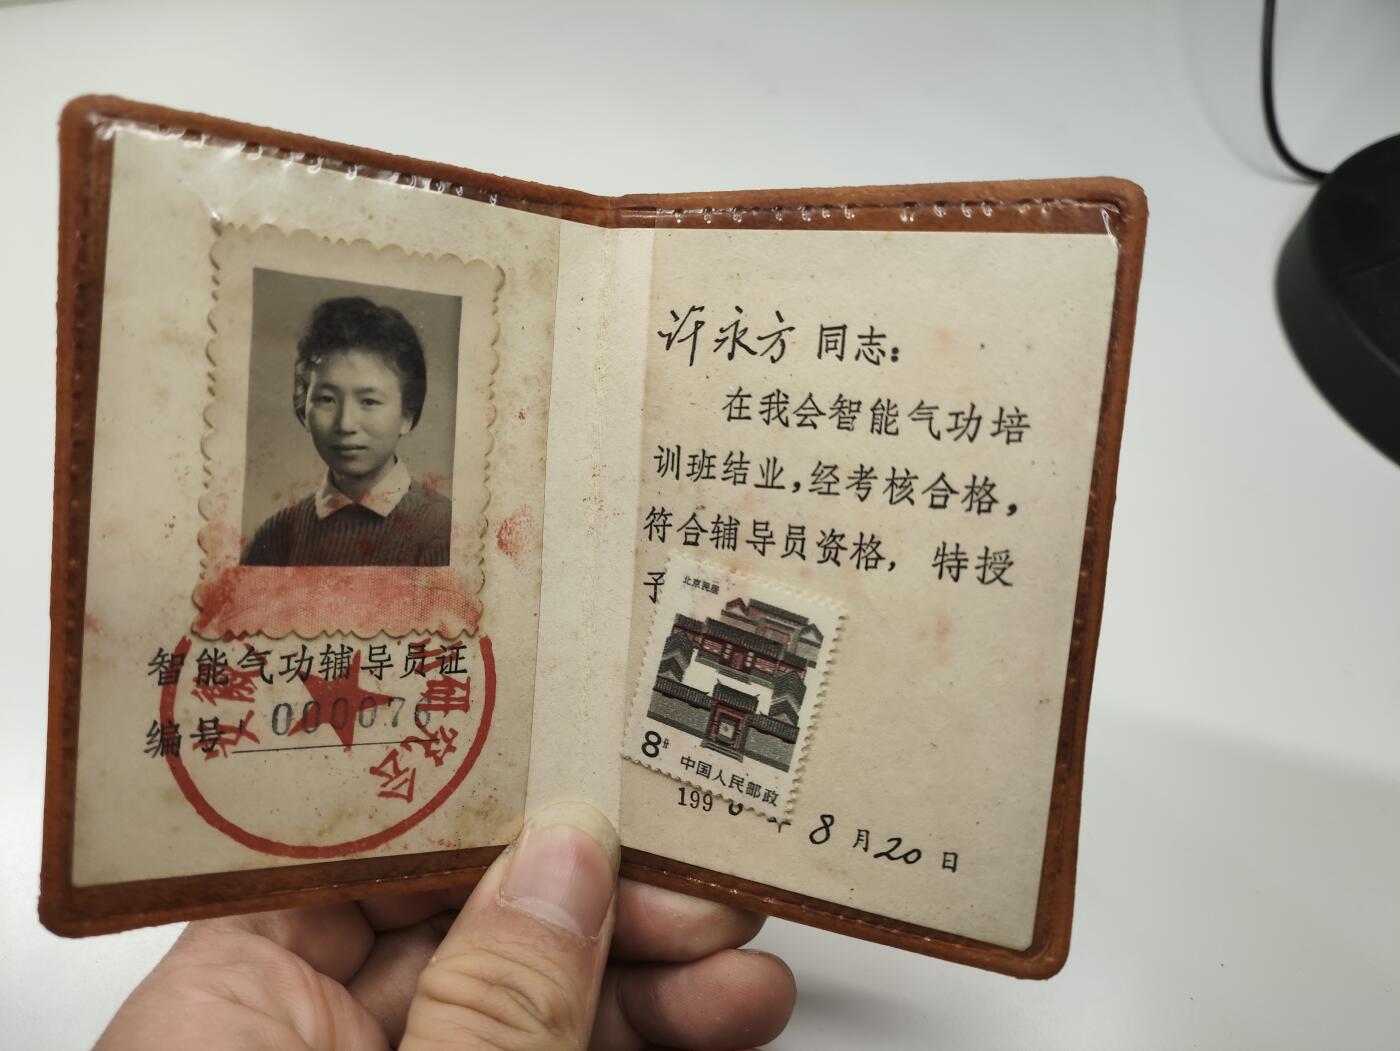 智能气功辅导员证
编号 000076
安徽
研究会
许永方同志：
在我会智能气功培
训班结业,经考核合格，
符合辅导员资格， 特授
予
北京民居
8分
中国人民邮政
199 年 8 月 20 日